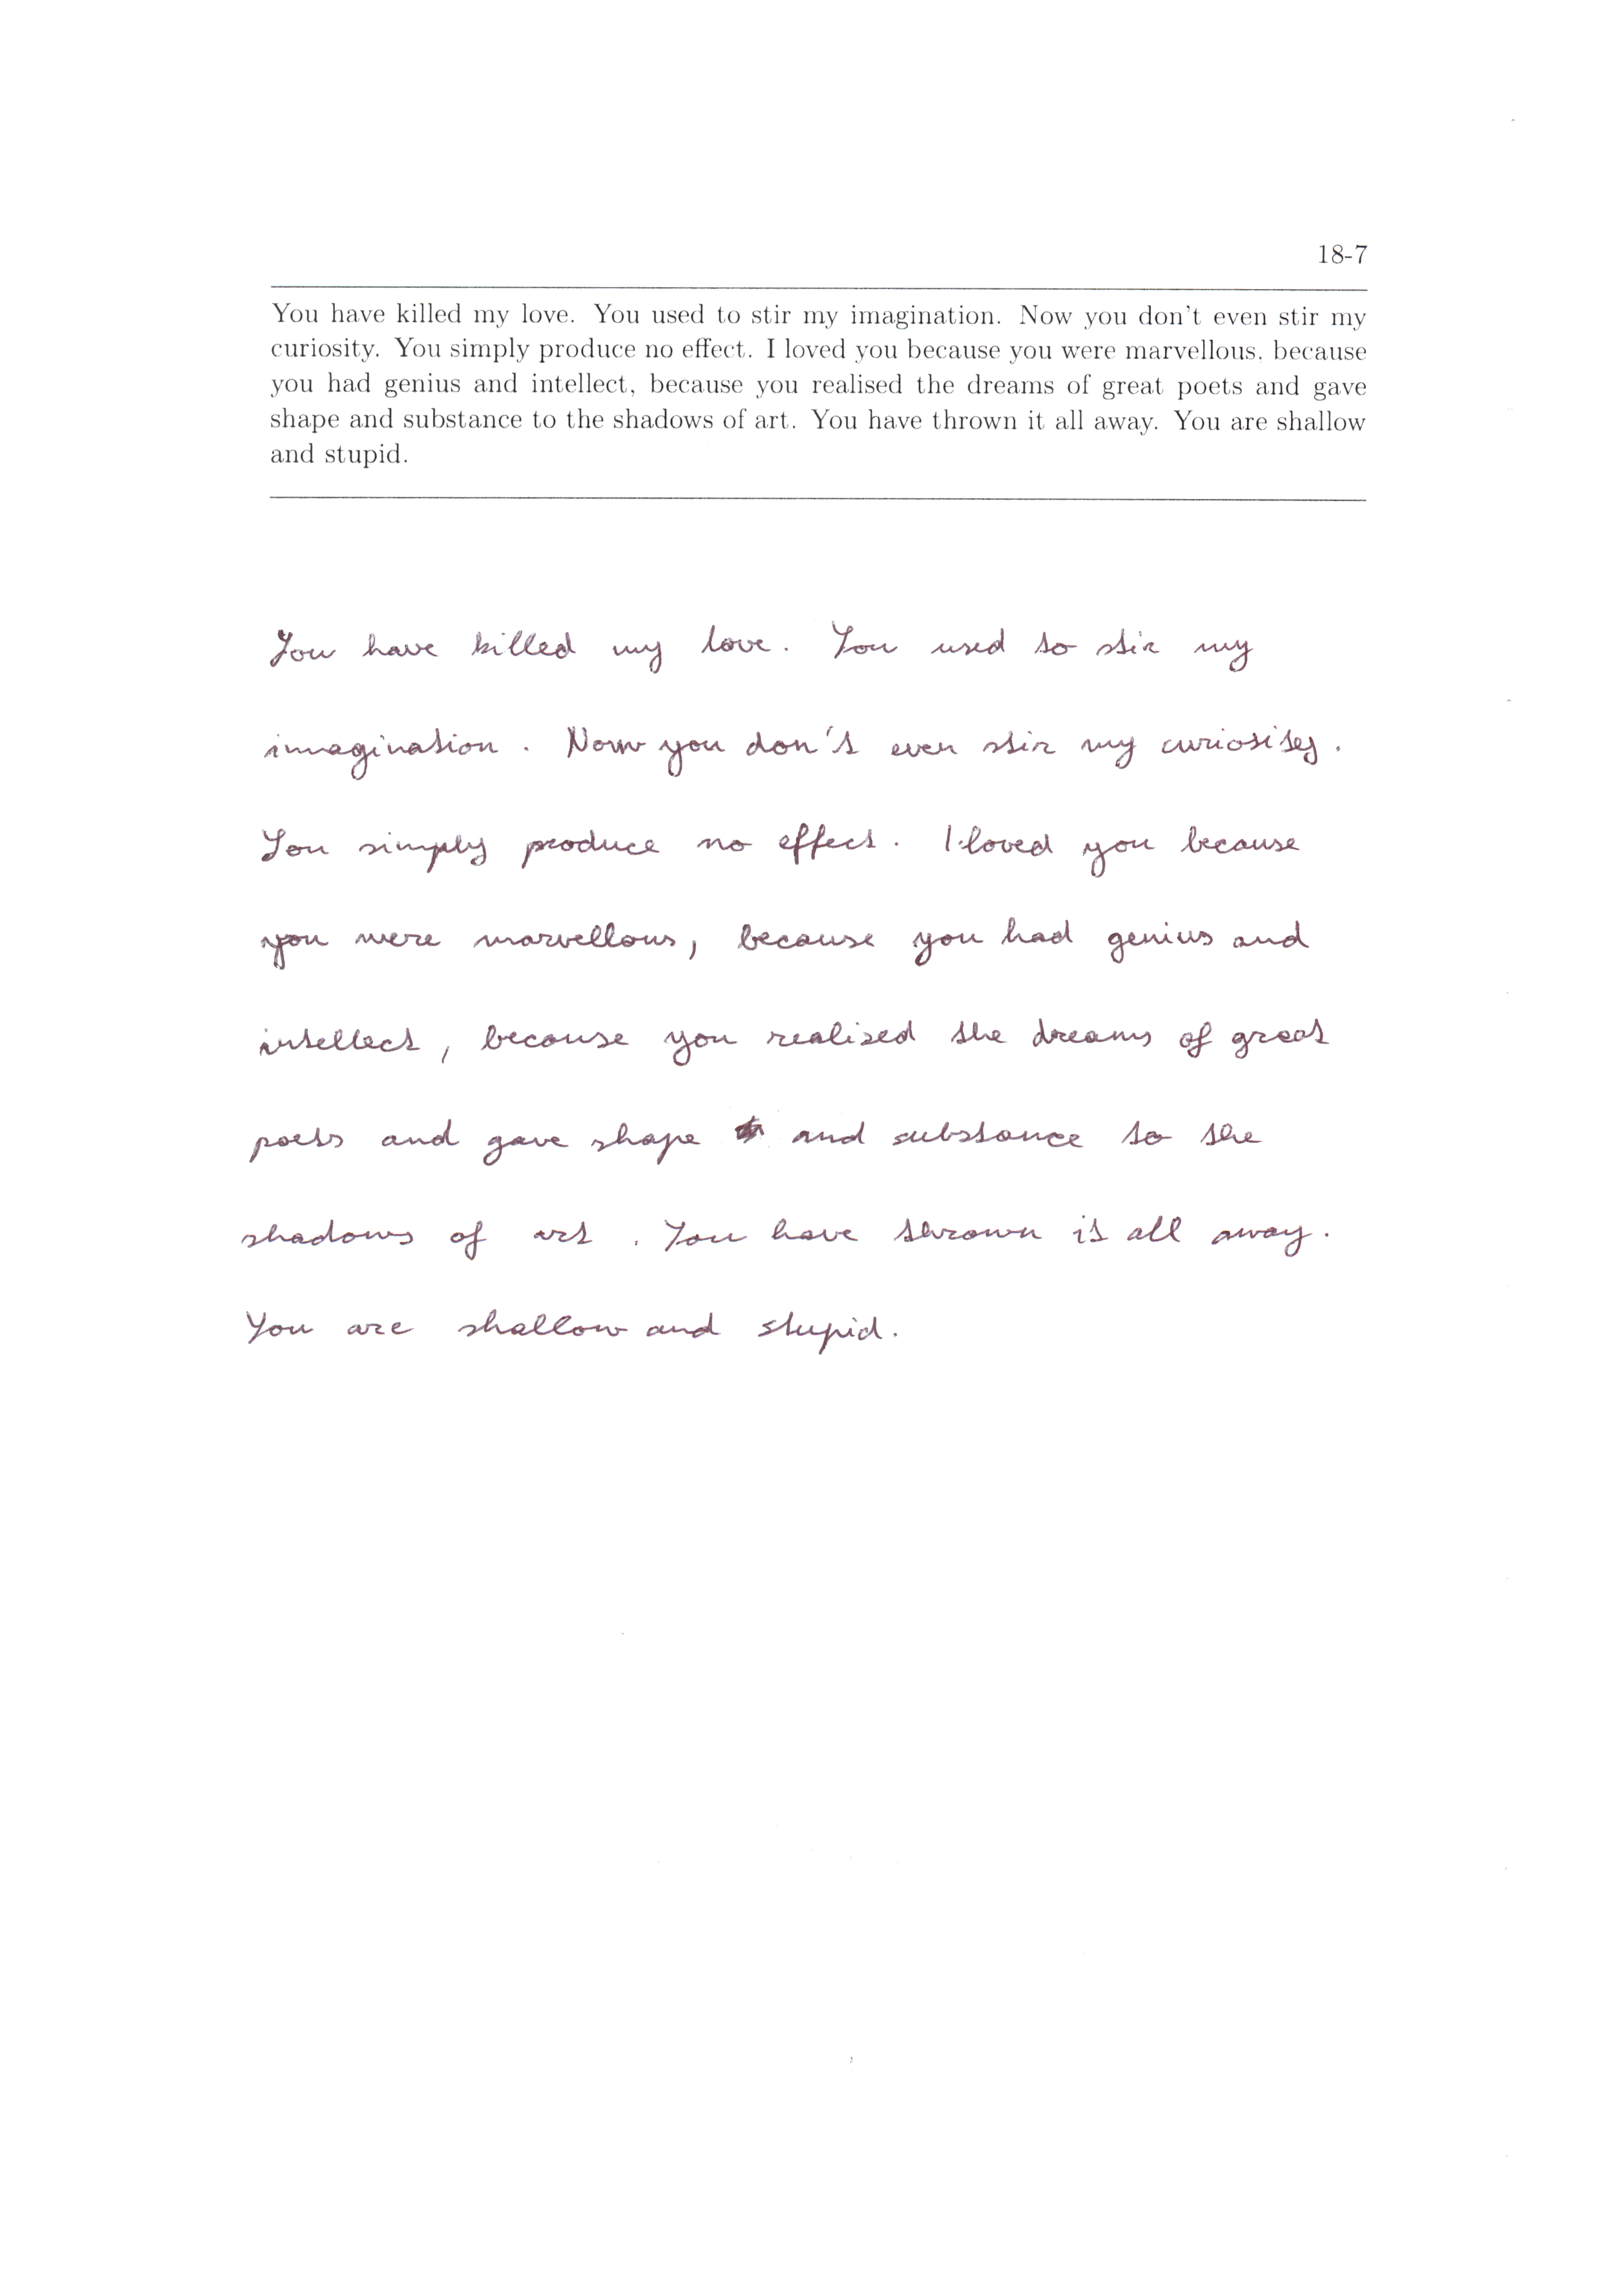 18-7
You have killed my love. You used to stir my imagination. Now you don't even stir my
curiosity. You simply produce no effect. I loved you because you were marvellous, because
you had genius and intellect, because you realised the dreams of great poets and gave
shape and substance to the shadows of art. You have thrown it all away. You are shallow
and stupid.
You have killed my love. You used to stir my
imagination. Now you don't even stir my curiosity.
You simply produce no effect. I loved you because
you were marvellous, because you had genius and
intellect, because you realised the dreams of great
poets and gave shape and substance to the
shadows of art. You have thrown it all away.
You are shallow and stupid.